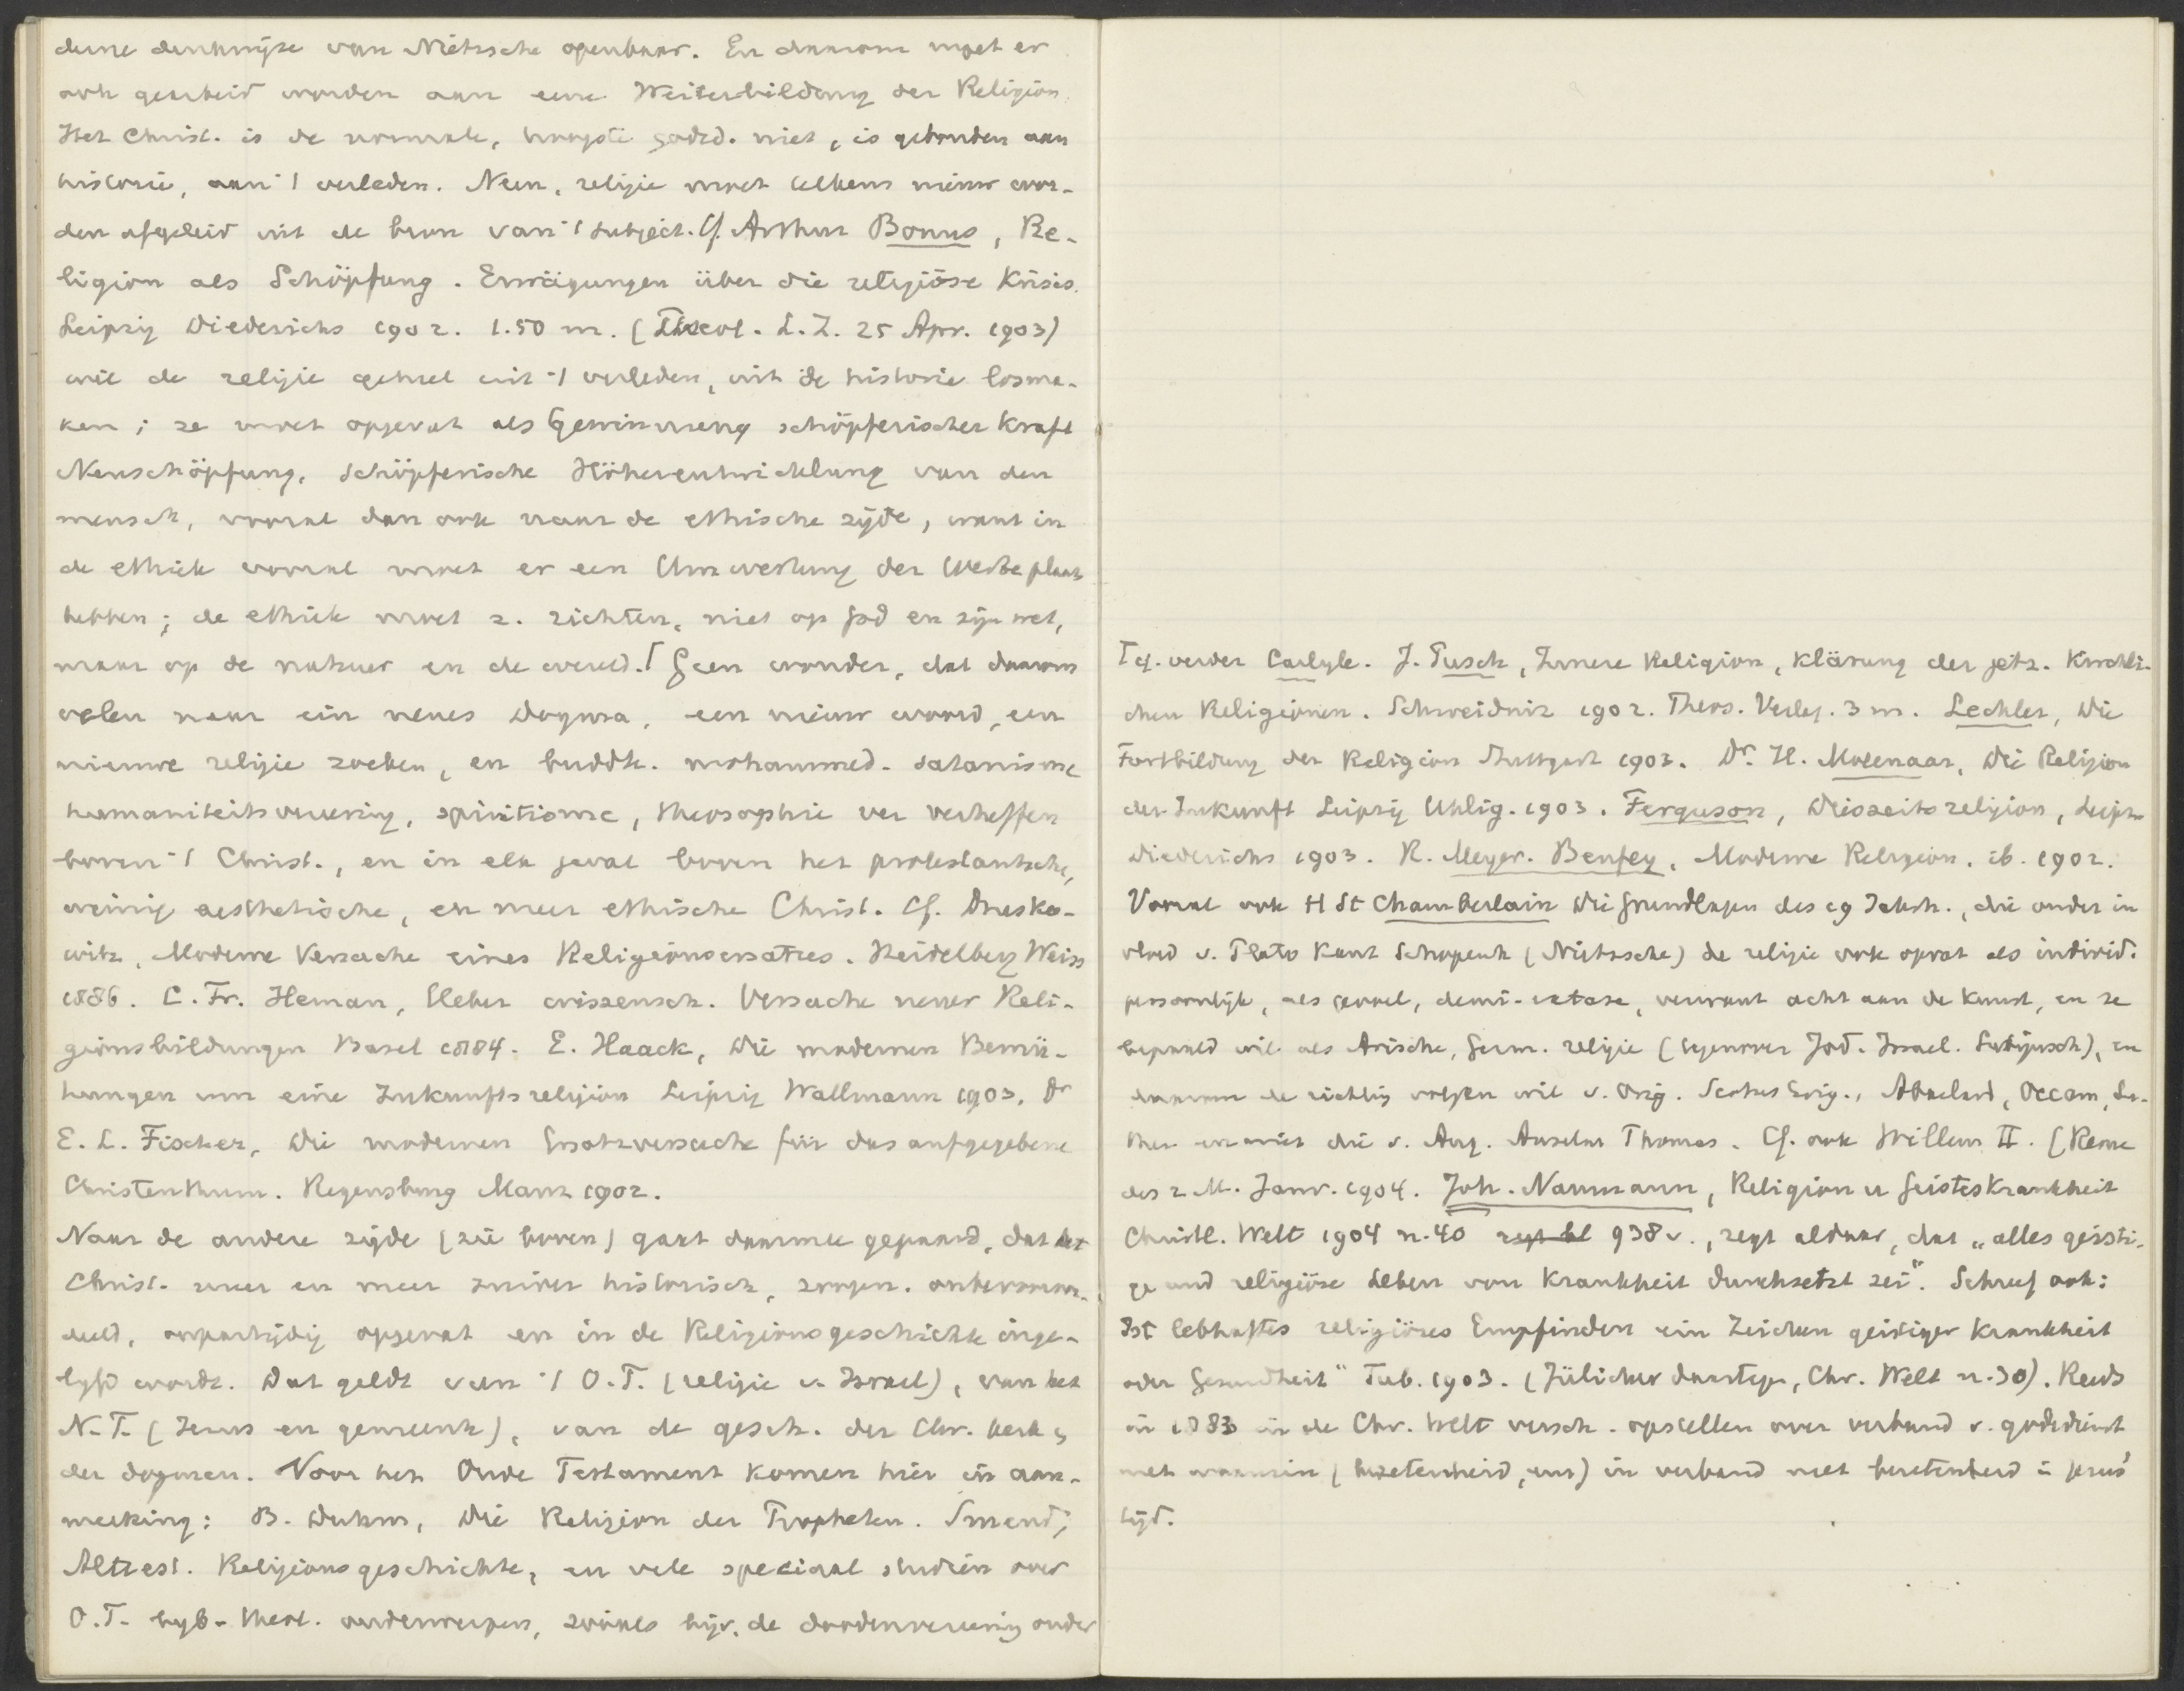 deze denkwijze van Nietzsche openbaar. En daarom moet er
ook gearbeid worden aan eene Weiterbildung der Religion.
Het Christ. is de normale, hoogste godsd. niet, is gebonden aan
historie, aan 't verleden. Neen, religie moet telkens nieuw wor-
den afgeleid uit de bron van 't subject. Cf. Arthur Bonus, Re-
ligion als Schöpfung. Erwägungen über die religiöse Krisis.
Leipzig Diederichs 1902. 1.50 m. (Theol. L. Z. 25 Apr. 1903)
wil de religie geheel uit 't verleden, uit de historie losma-
ken; ze moet opgevat als Gewinnung schöpferischer Kraft
Neuschöpfung, schöpferische Höherentwicklung van den
mensch, vooral dan ook naar de ethische zijde, want in
de ethiek vooral moet er een Umwertung der Werte plaats
hebben; de ethiek moet z. richten, niet op God en zijn wet,
maar op de natuur en de wereld.⌈ Geen wonder, dat daarom
velen naar ein neues Dogma, een nieuw woord, een
nieuwe religie zoeken, en buddh. mohammed. satanisme
humaniteitsvereering, spiritisme, theosophie ver verheffen
boven 't Christ., en in elk geval boven het protestantsche,
weinig aesthetische, en meer ethische Christ. Cf. Drusko-
witz, Moderne Versuche eines Religionsersatzes. Heidelberg Weiss
1886. C. Fr. Heman, Ueber wissensch. Versuche neuer Reli-
gionsbildungen Basel 1884. E. Haack, Die modernen Bemü-
hungen um eine Zukunftsreligion Leipzig Wallmann 1903. Dr
E. L. Fischer, Die modernen Ersatzversuche für das aufgegebene
Christenthum. Regensburg Manz 1902.
Naar de andere zijde (zie boven) gaat daarmee gepaard, dat het
Christ. meer en meer zuiver historisch, zoogen. onbevooroor-
deeld, onpartijdig opgevat en in de Religionsgeschichte inge-
lijfd wordt. Dat geldt van 't O.T. (religie v. Israel), van het
N.T. (Jezus en gemeente), van de gesch. der Chr. kerk &
der dogmen. Voor het Oude Testament komen hier in aan-
merking: B. Duhm, Die Religion der Propheten. Smend,
Alttest. Religionsgeschichte, en vele speciaal studiën over
O.T. bijb-theol. onderwerpen, zooals bijv. de doodenvereering onder
⌈cf. verder Carlyle. J. Tusch, Innere Religion, Klärung der jetz. kirchli-
chen Religionen. Schweidniz 1902. Theos. Verlag. 3 m. Lechler, Die
Fortbildung der Religion Stuttgart 1903. Dr. H. Molenaar, Die Religion
der Zukunft Leipzig Uhlig. 1903. Ferguson, Diesseitsreligion, Leipz.
Diederichs 1903. R. Meyer. Benfey, Moderne Religion. ib. 1902.
Vooral ook H St Chamberlain Die Grundlagen des 19 Jahrh., die onder in
vloed v. Plato Kant Schopenh (Nietzsche) de religie ook opvat als individ.
persoonlijk, als gevoel, demi-extase, verwant acht aan de kunst, en ze
bepaald wil als Arische, Germ. religie (tegenover Jod. Israel.), en
daarom de richting volgen wil v. Orig. Scotus Erig., Abaelard, Occam, Lu-
ther en niet die v. Aug. Anselm Thomas. Cf. ook Willem II. (Revue
des 2 M. Janv. 1904. Joh. Naumann, Religion u Geisteskrankheit
Christl. Welt 1904 n. 40 938 v., zegt aldaar, dat „alles geisti-
ge und religiöse Leben von Krankheit durchsetzt sei". Schreef ook:
Ist lebhaftes religiöses Empfinden ein Zeichen geistiger Krankheit
oder Gesundheit" Tub. 1903. (Jülicher daartegen, Chr. Welt n. 30). Reeds
in 1883 in de Chr. Welt versch. opstellen over verband v. godsdienst
met waanzin (bezetenheid, enz) in verband met bezetenheid in Jezus'
tijd.